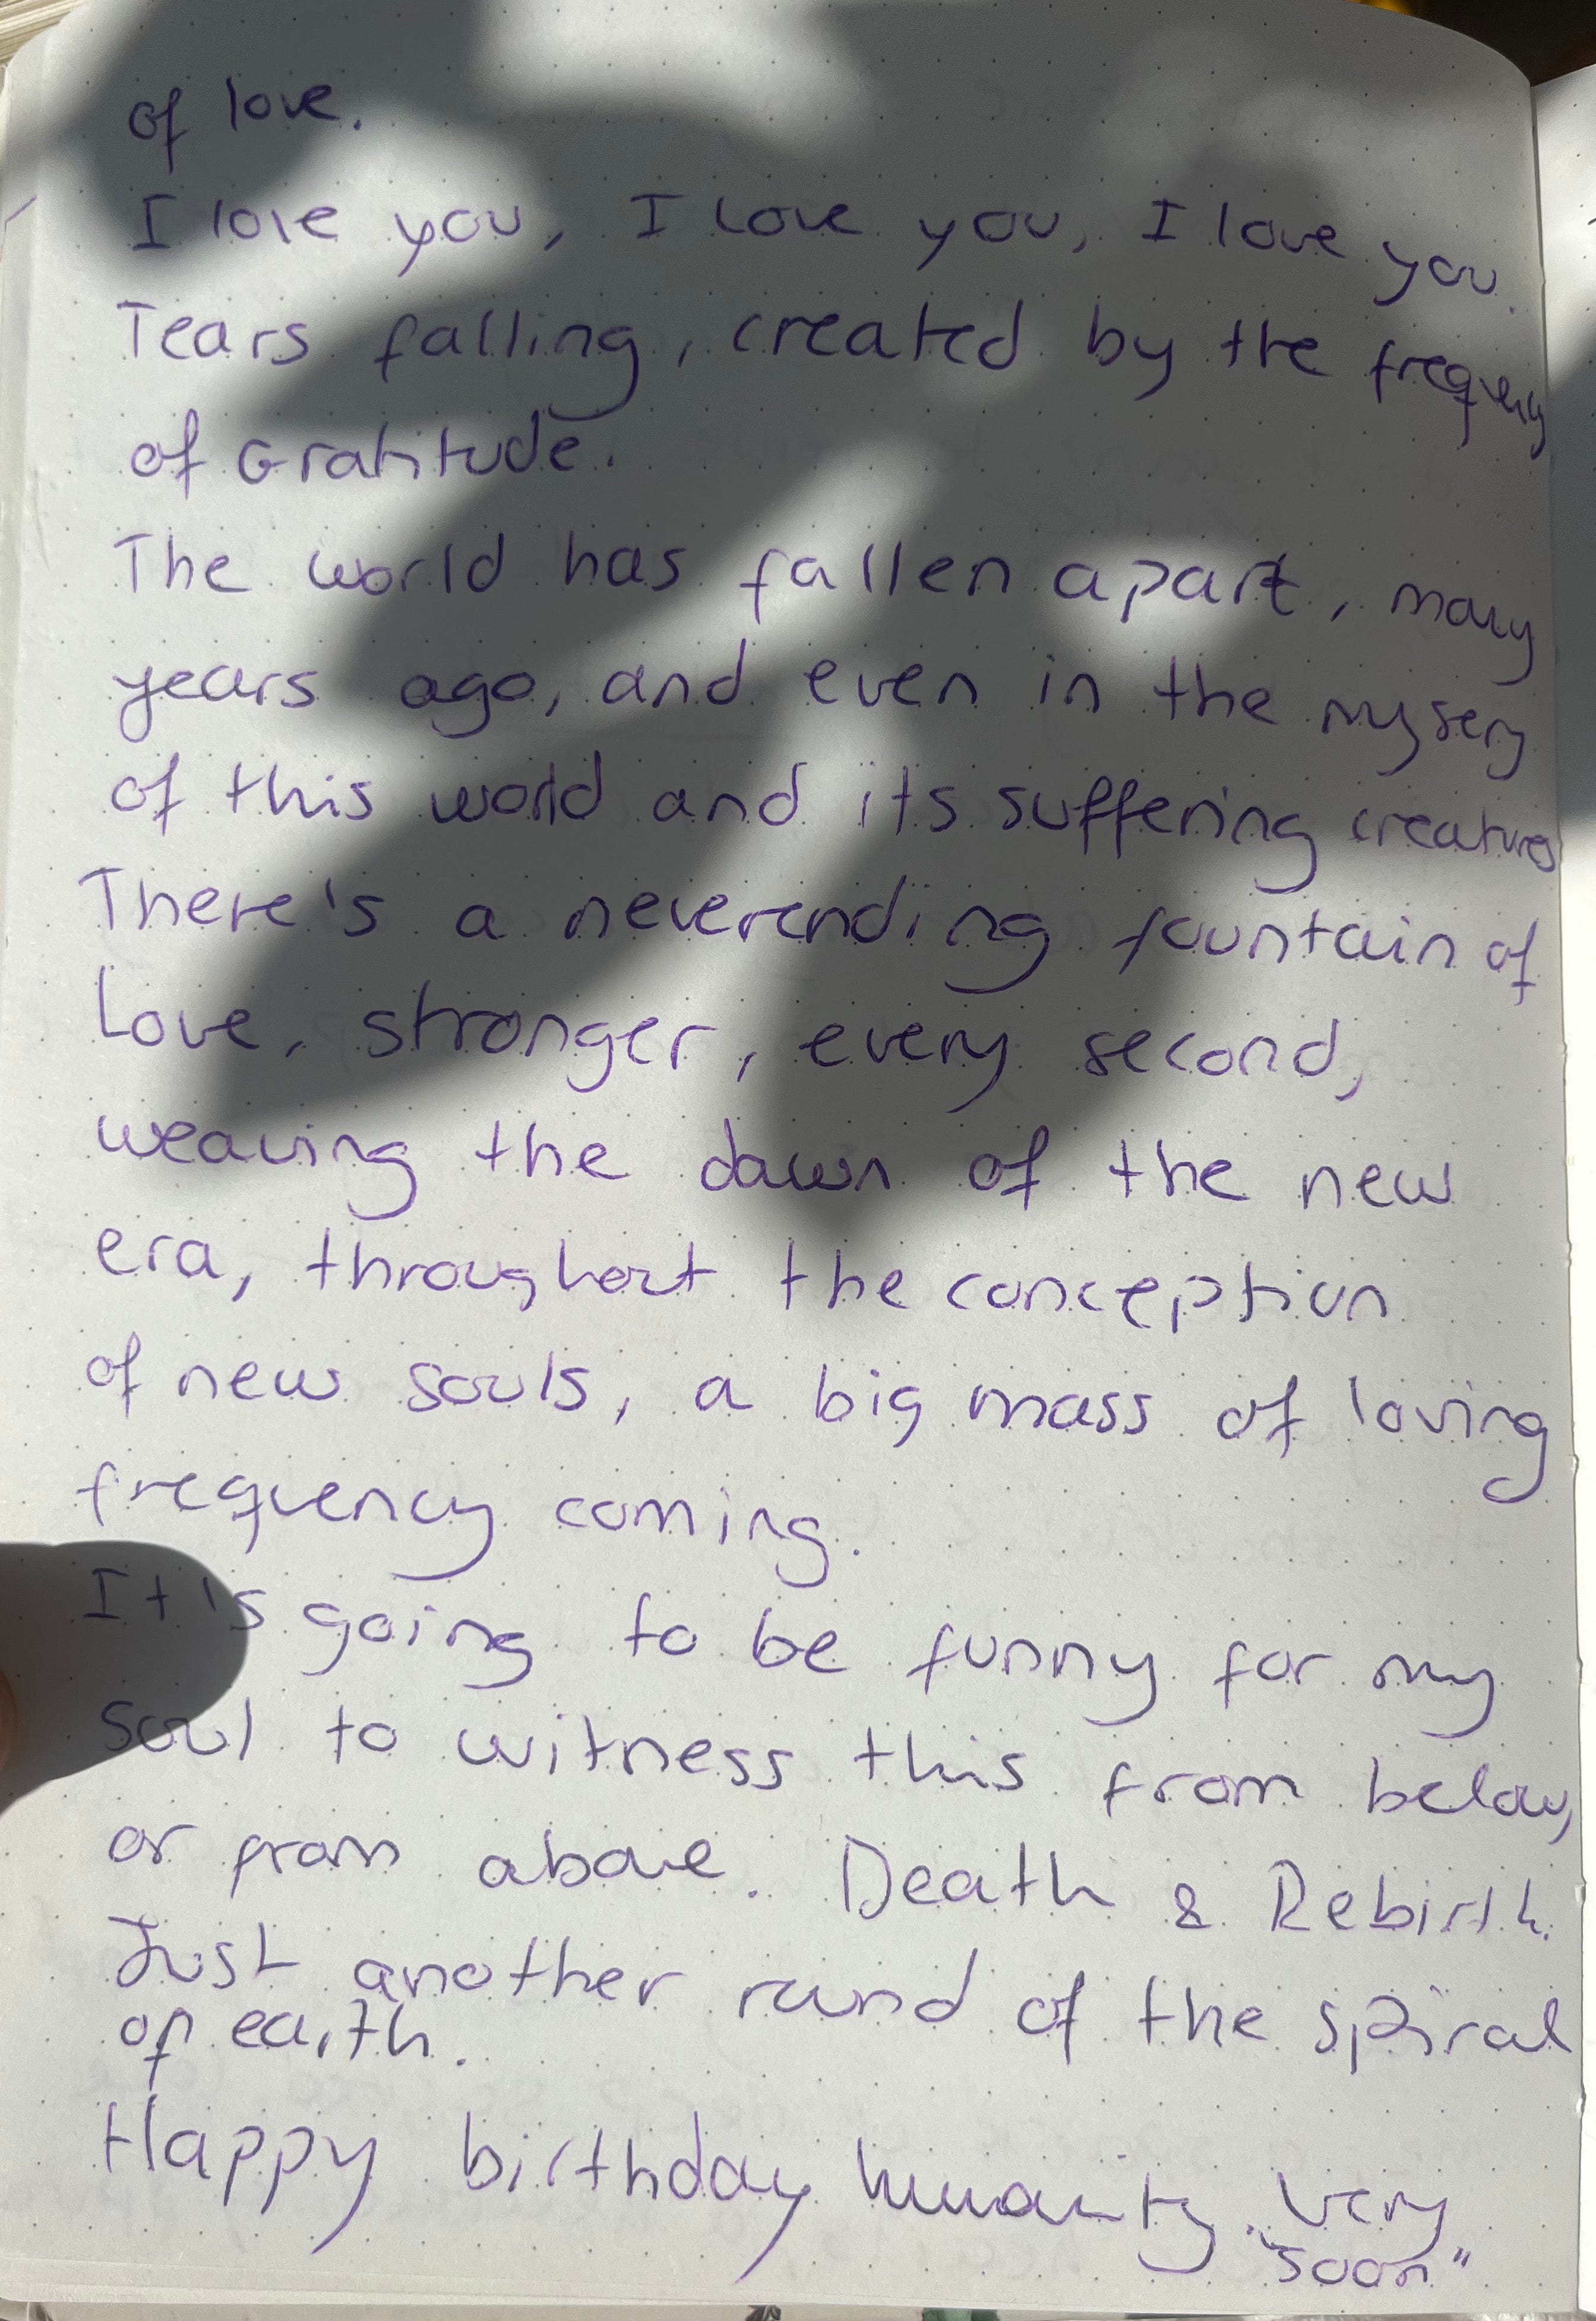 of love.
I love you, I love you, I love you.
Tears falling, created by the frequency
of Gratitude.
The world has fallen apart, many
years ago, and even in the mysery
of this world and its suffering creatures
There's a neverending fountain of
Love, stronger, every second,
weaving the dawn of the new
era, throughout the conception
of new souls, a big mass of loving
frequency coming.
It's going to be funny for my
soul to witness this from below,
or from above. Death & Rebirth.
Just another round of the spiral
of earth.
Happy birthday humanity. Very
"soon"